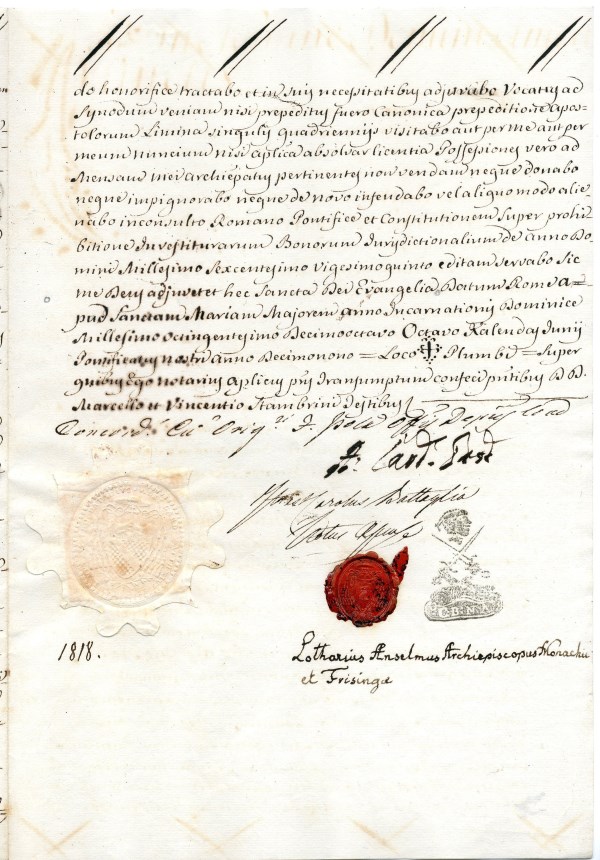 do honorifice tractabo et in suis necessitatibus adjuvabo Vocatus ad
Synodum veniam nisi prepeditus fuero Canonica prepeditione Apos=
tolorum Limina singulis quadrienniis visitabo aut per me aut per
meum nuncium nisi aplica absolvar licentia Possessiones vero ad
Mensam mei Archiepatus pertinentes non vendam neque donabo
neque impignorabo neque de novo infeudabo vel aliquo modo alie
nabo inconsulto Romano Pontifice et Constitutionem super prohi
bitione Investiturarum Bonorum Jurisdictionalium de anno Do
mini Millesimo sexcentesimo vigesimoquinto editam servabo Sic
me Deus adjuvet et hec Sancta Dei Evangelia Datum Rome a=
pud Sanctam Mariam Majorem anno Incarnationis Dominice
Millesimo Octingentesimo Decimooctavo Octavo Kalendas Junii
Pontificatus nostri anno Decimonono = Loco ✠ Plumbi = Super
quibus Ego notarius Aplicus pns transumptum confeci pntibus D D.
Marcello et Vincentio Stambrini Testibus
Concord. Cum Orig.
Card.
Carolus Battaglia
C.B.N.A
1818.
Lotharius Anselmus Archiepiscopus Monachii
et Frisingæ